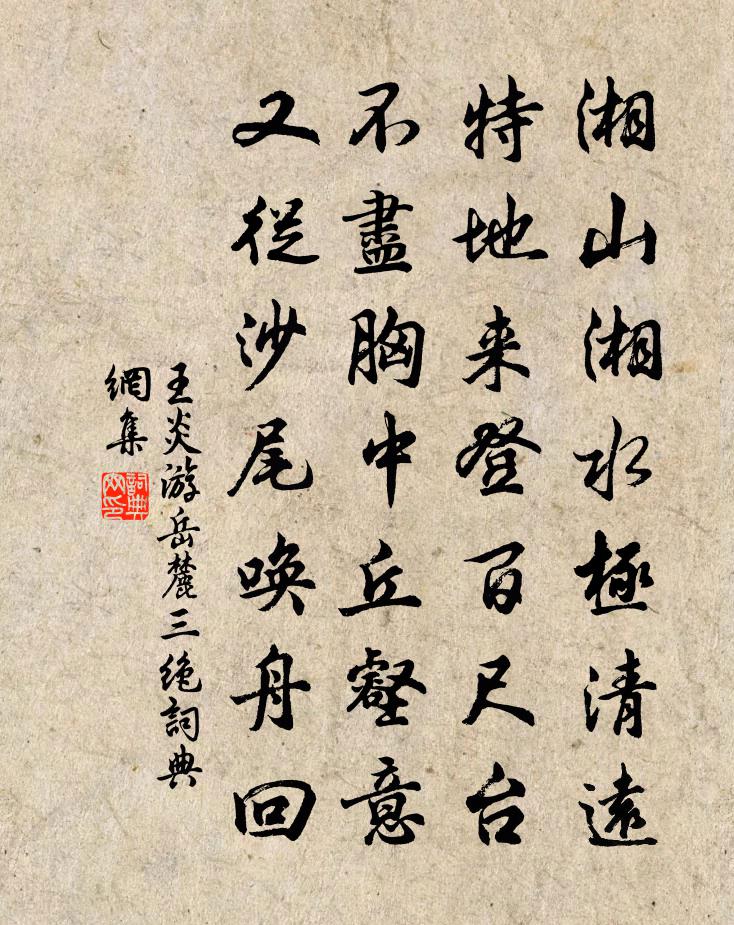 湘山湘水極清遠
特地来登百尺台
不盡胸中丘壑意
又從沙尾喚舟回
王炎游岳麓三绝詞典
網集
詞典
網印